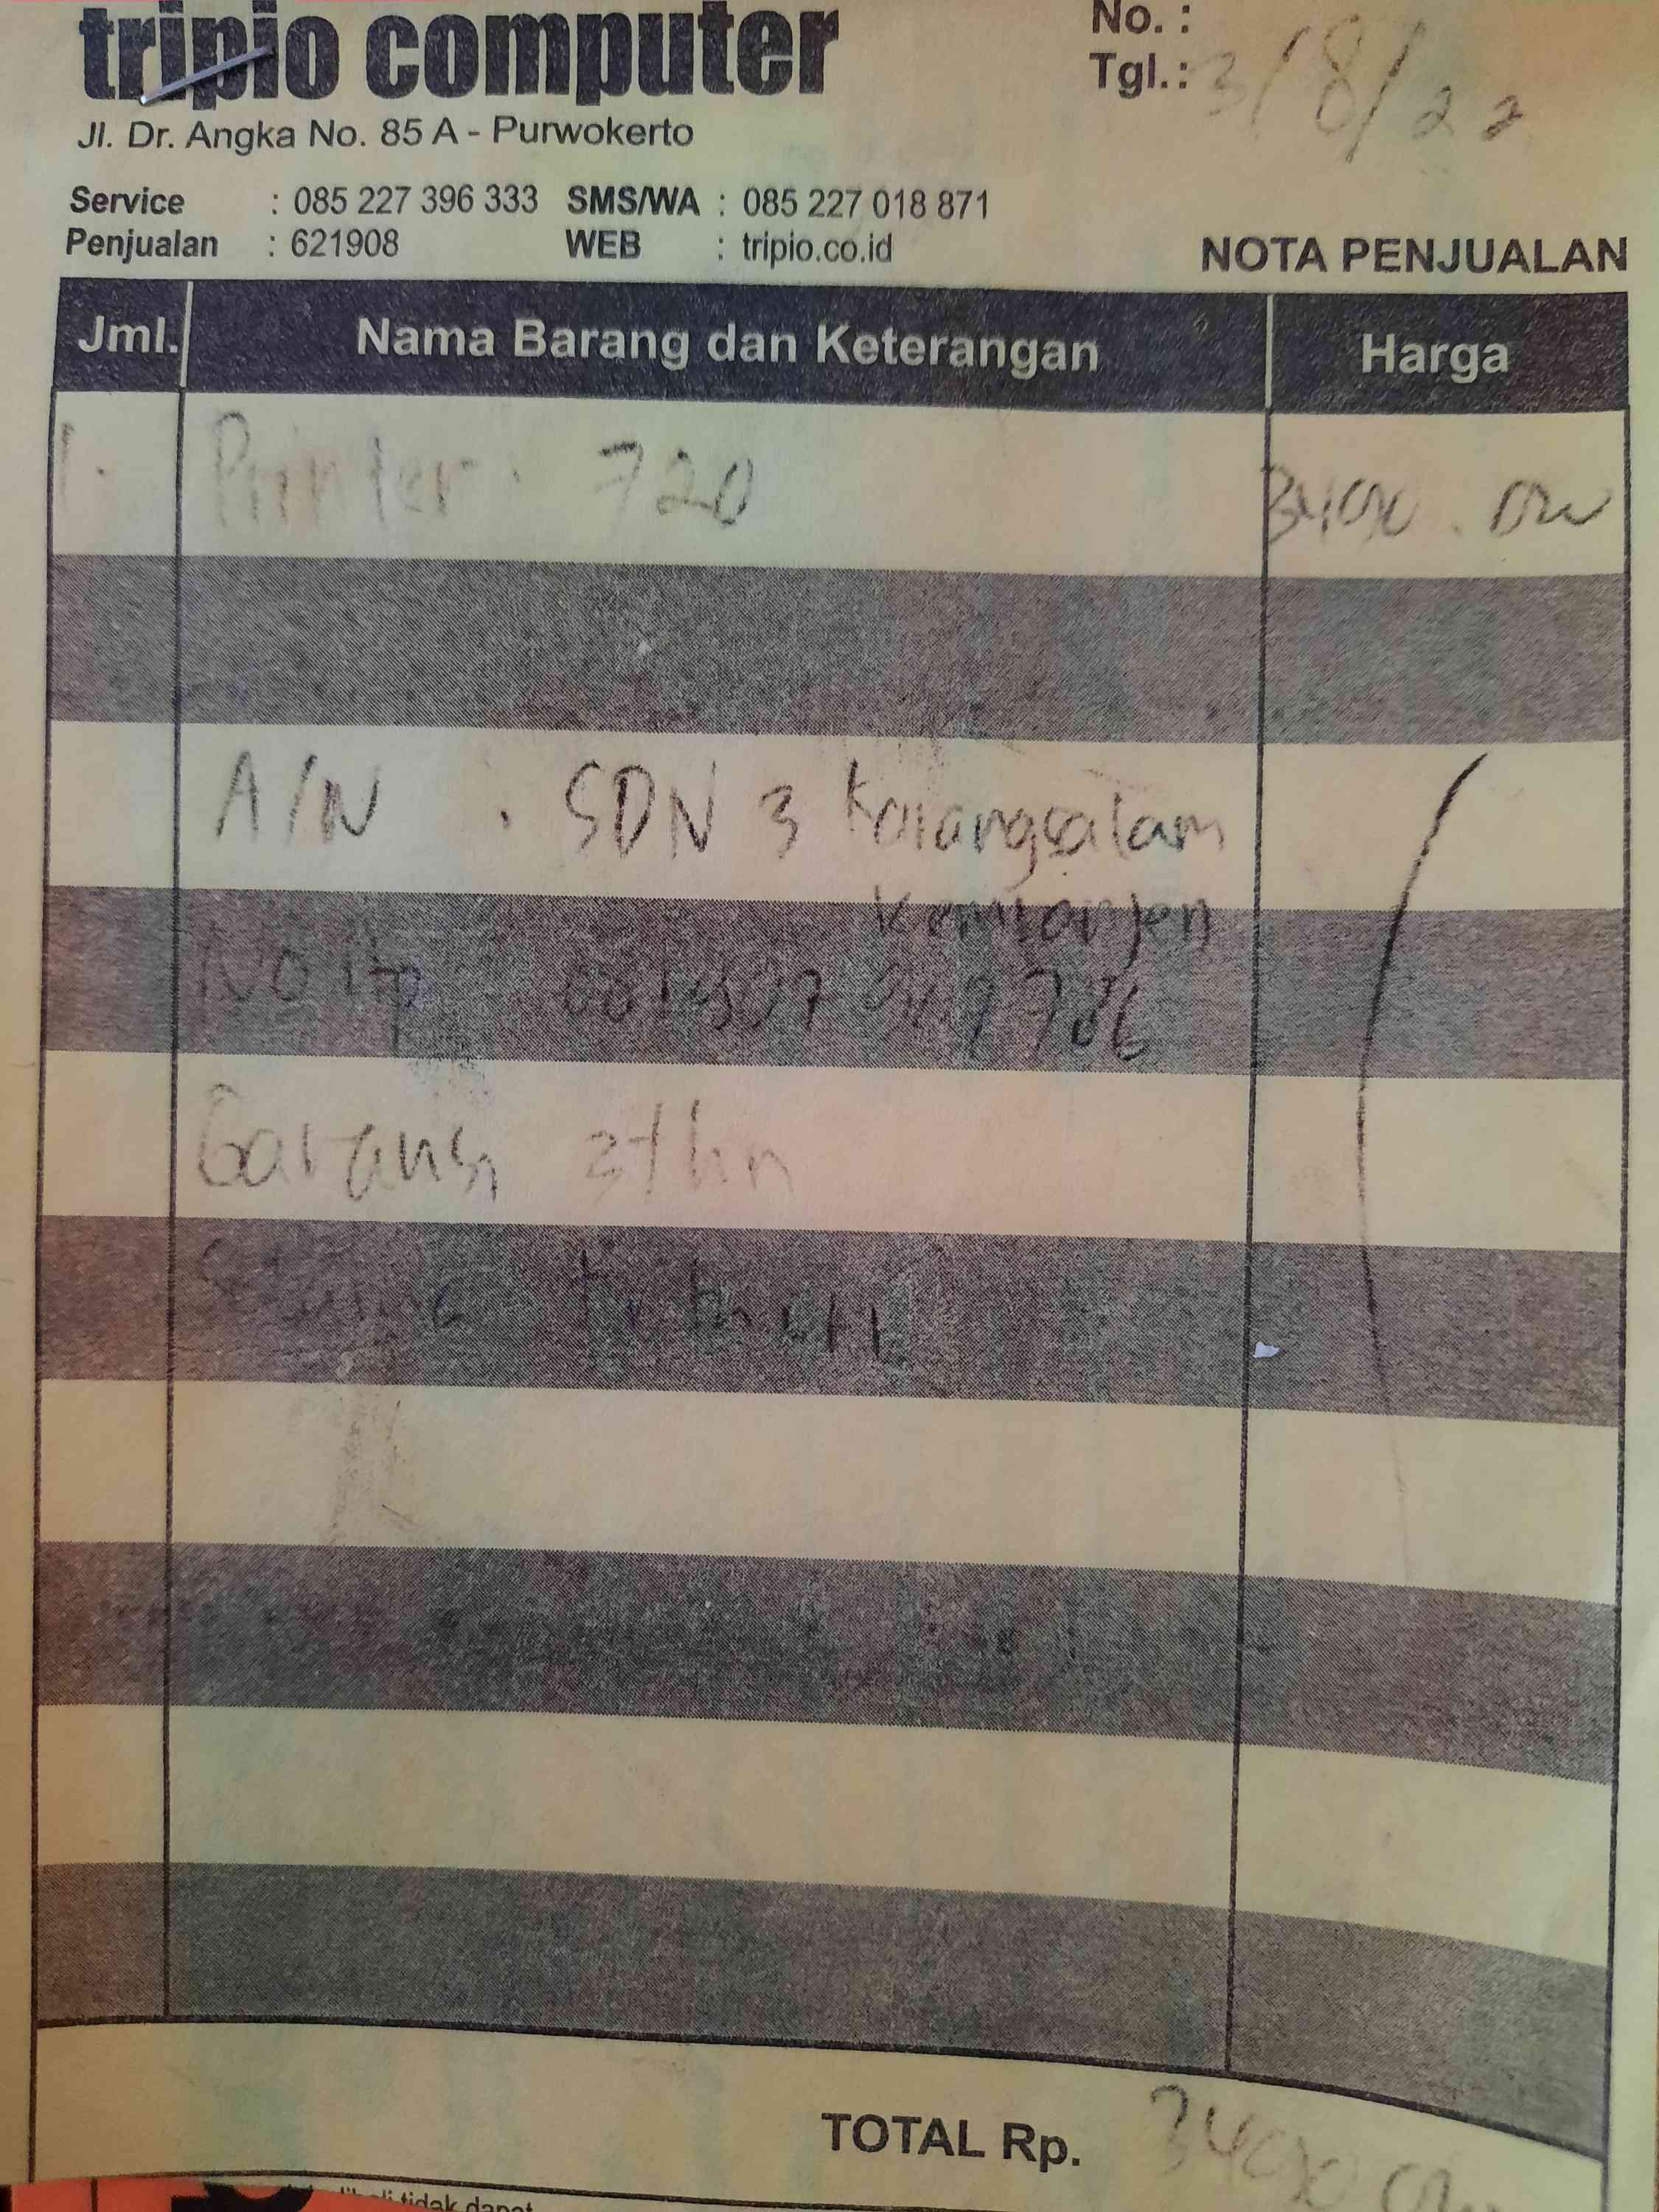 tripio computer
No. :
Tgl. : 3/8/22
Jl. Dr. Angka No. 85 A - Purwokerto
Service : 085 227 396 333 SMS/WA : 085 227 018 871
Penjualan : 621908 WEB : tripio.co.id
NOTA PENJUALAN
Jml. Nama Barang dan Keterangan Harga
1. Printer. 720
A/N . SDN 3 Karangsalam
Kemranjen
No Hp
Garansi 3 thn
TOTAL Rp.
tidak dapat